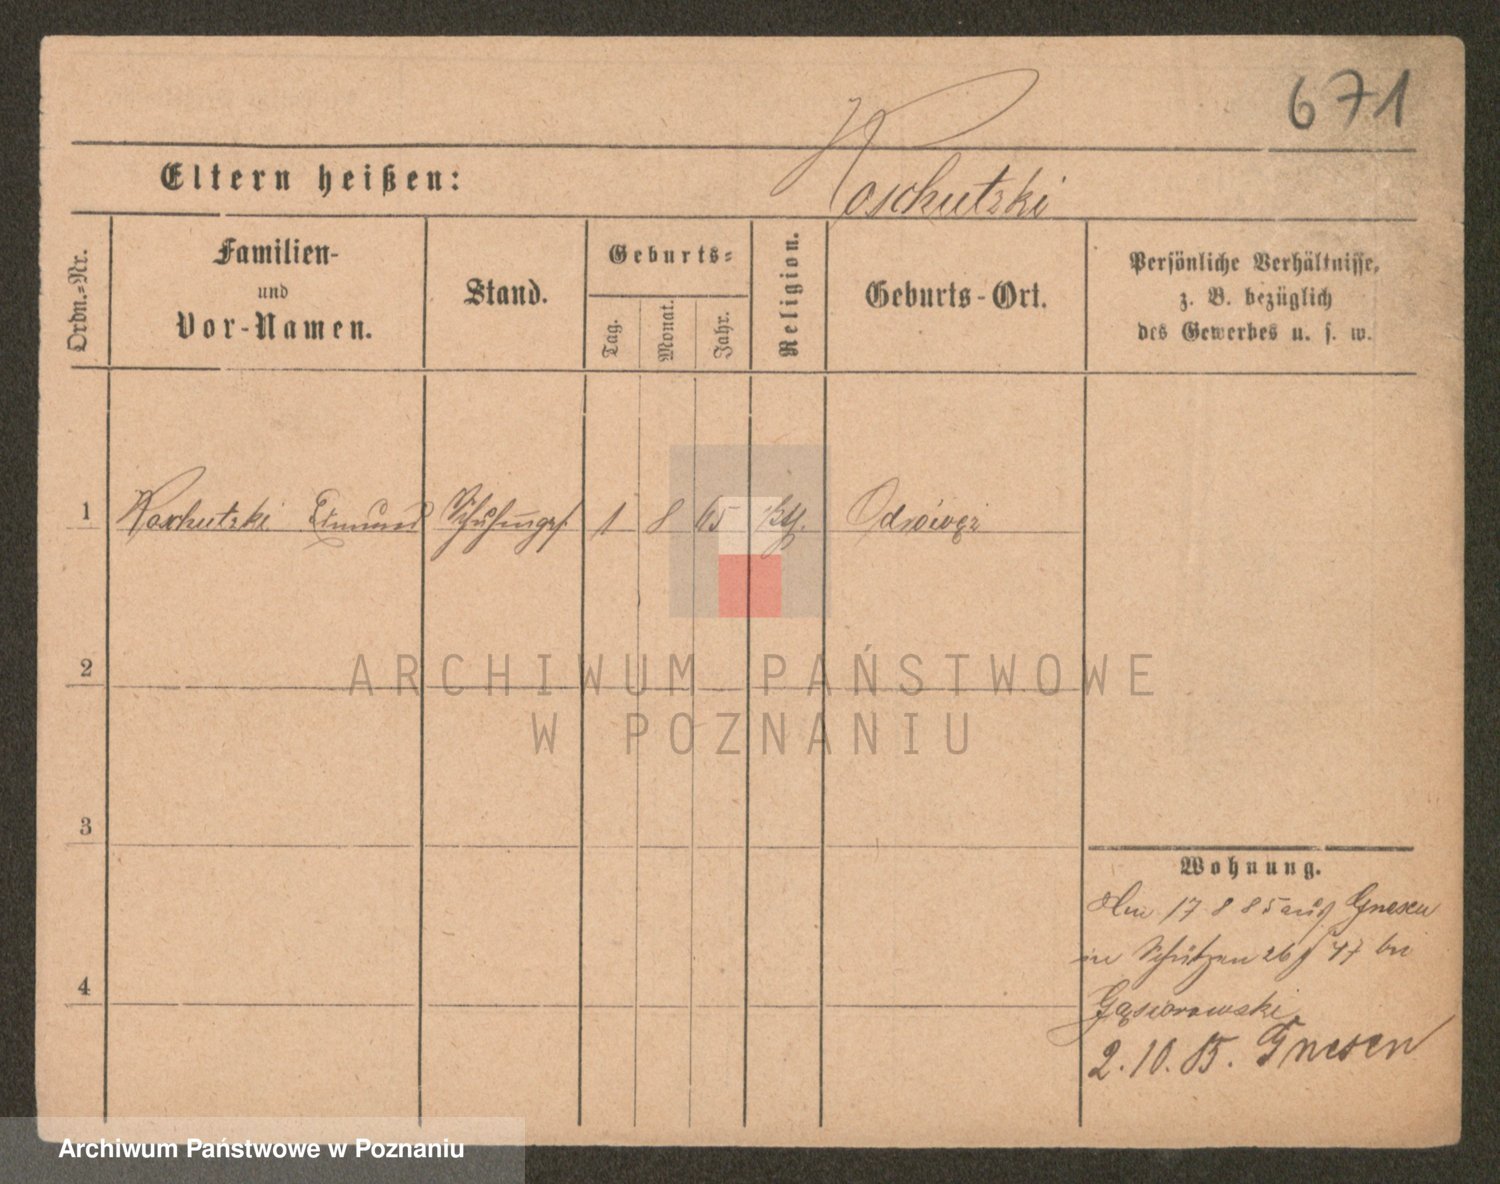 671
Eltern heißen:
Koschutzki
Ordn.=Nr.
Familien-
und
Vor-Namen.
Stand.
Geburts=
Tag.
Monat.
Jahr.
Religion.
Geburts-Ort.
Persönliche Verhältnisse,
z. B. bezüglich
des Gewerbes u. s. w.
1 Koschutzki Edmund 1 8 65 kth. Odrowąż
2
3
4
ARCHIWUM PAŃSTWOWE
W POZNANIU
Wohnung.
Am 17 8 85 aus Gnesen
in Schützen 26 bei
Gąsiorowski
2.10.85. Gnesen
Archiwum Państwowe w Poznaniu